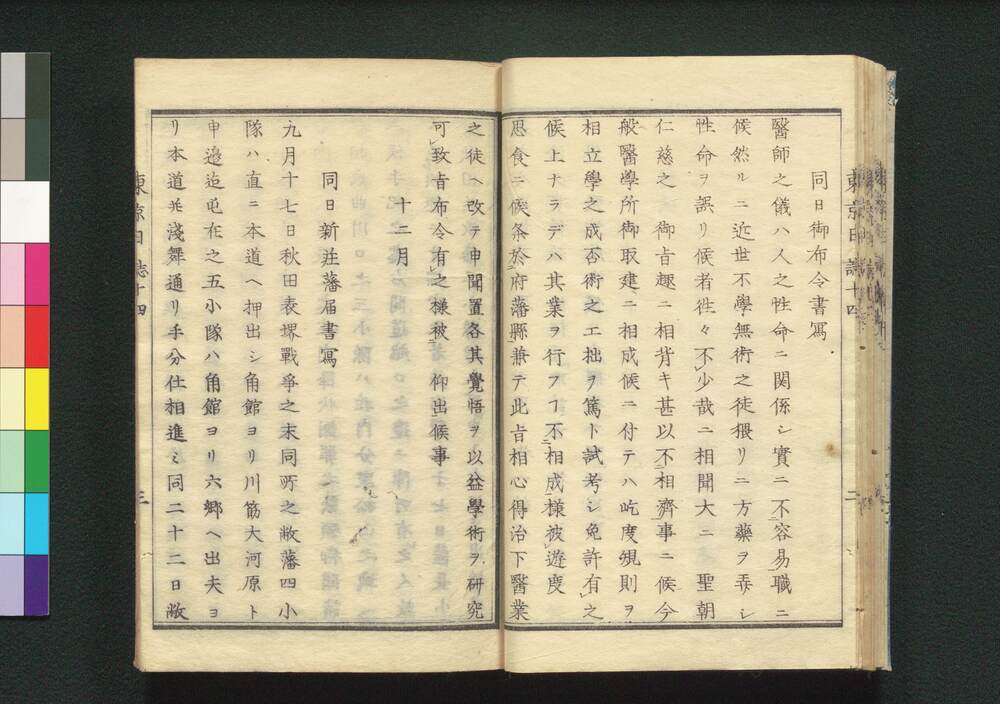 同日御布令書寫
醫師之儀ハ人之性命ニ関係シ實ニ不容易職ニ
候然ルニ近世不學無術之徒猥リニ方藥ヲ弄シ
性命ヲ誤リ候者徃々不少哉ニ相聞大ニ 聖朝
仁慈之 御旨趣ニ相背キ甚以不相濟事ニ候今
般醫學所御取建ニ相成候ニ付テハ屹度規則ヲ
相立學之成否術之工拙ヲ篤ト試考シ免許有之
候上ナラデハ其業ヲ行フヿ不相成様被遊度
思食ニ候条於府藩縣兼テ此旨相心得治下醫業
之徒ヘ改テ申聞置各其覺悟ヲ以益學術ヲ研究
可致旨布令有之様被 仰出候事
十二月
同日新莊藩届書寫
九月十七日秋田表堺戰爭之末同所之敝藩四小
隊ハ直ニ本道ヘ押出シ角館ヨリ川筋大河原ト
申邉迄屯在之五小隊ハ角館ヨリ六郷ヘ出夫ヨ
リ本道並淺舞通リ手分仕相進ミ同二十二日敝
東京日誌十四
二
東京日誌十四
三